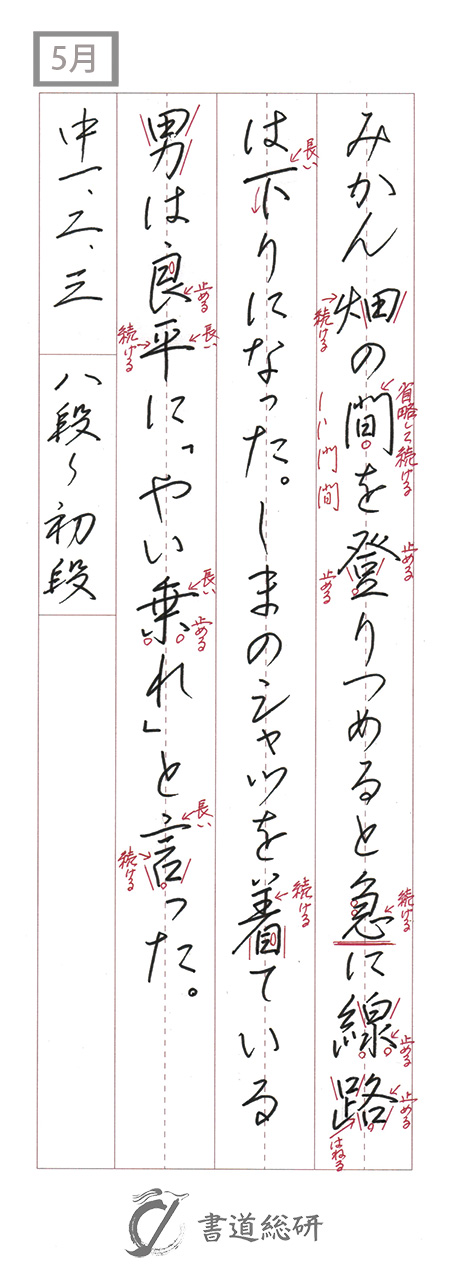 5月
みかん畑の間を登りつめると急に線路
は下りになった。しまのシャツを着ている
男は良平に「やい乗れ」と言った。
中一、二、三
八段〜初段
続ける
省略して続ける
門間
止める
止める
続ける
止める
止める
はねる
長い
続ける
止める
長い
続ける
長い
止める
長い
続ける
書道総研